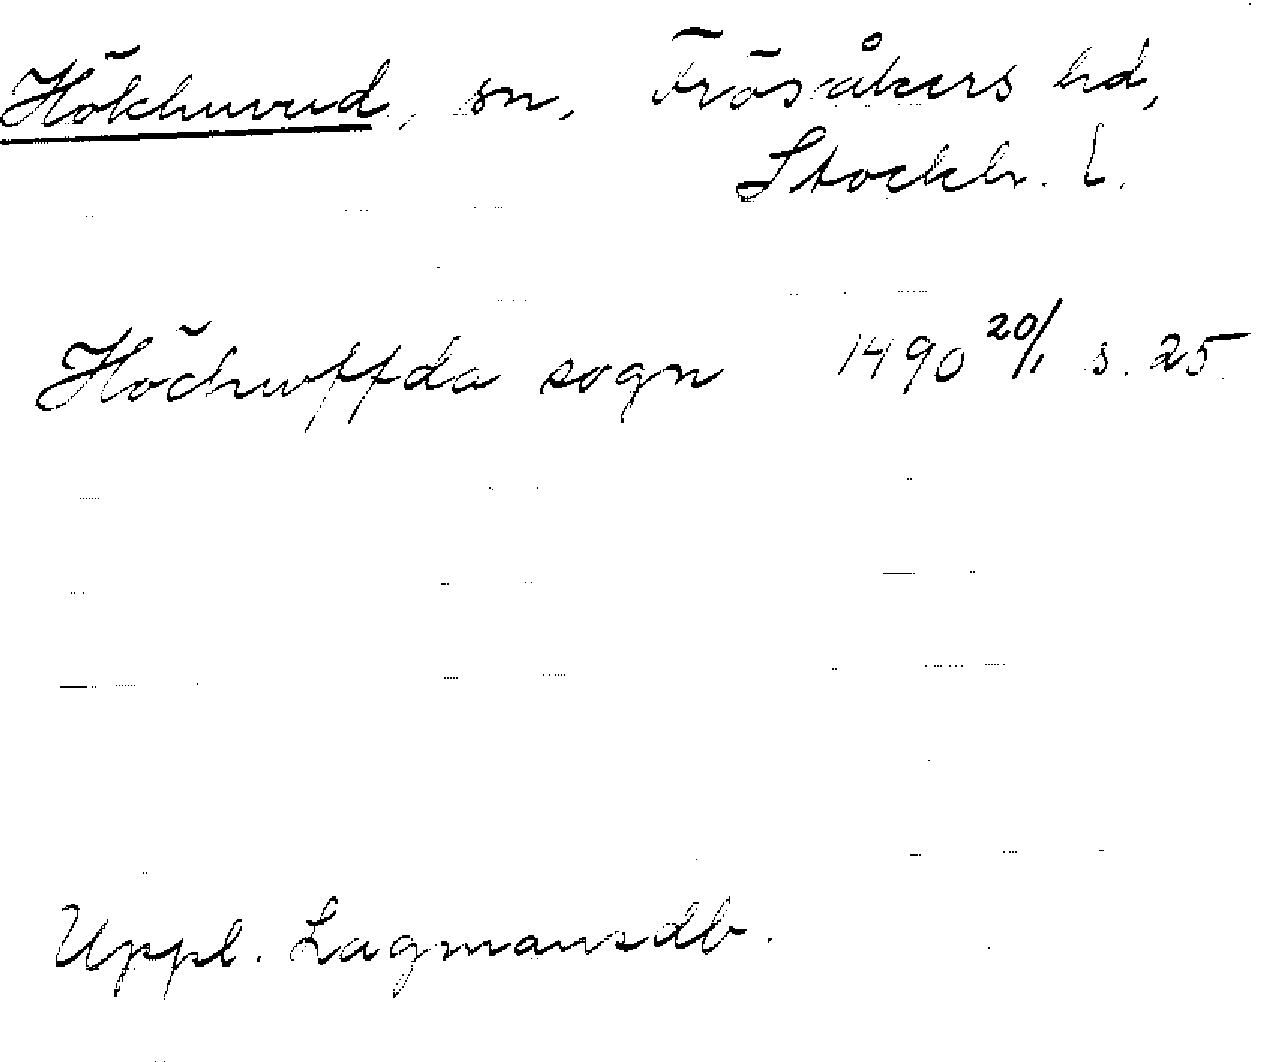 Hökhuvud, sn, Frösåkers hd,
Stockh. l.
Höchwffda sogn 1490 20/1 s. 25
Uppl. Lagmansdb.